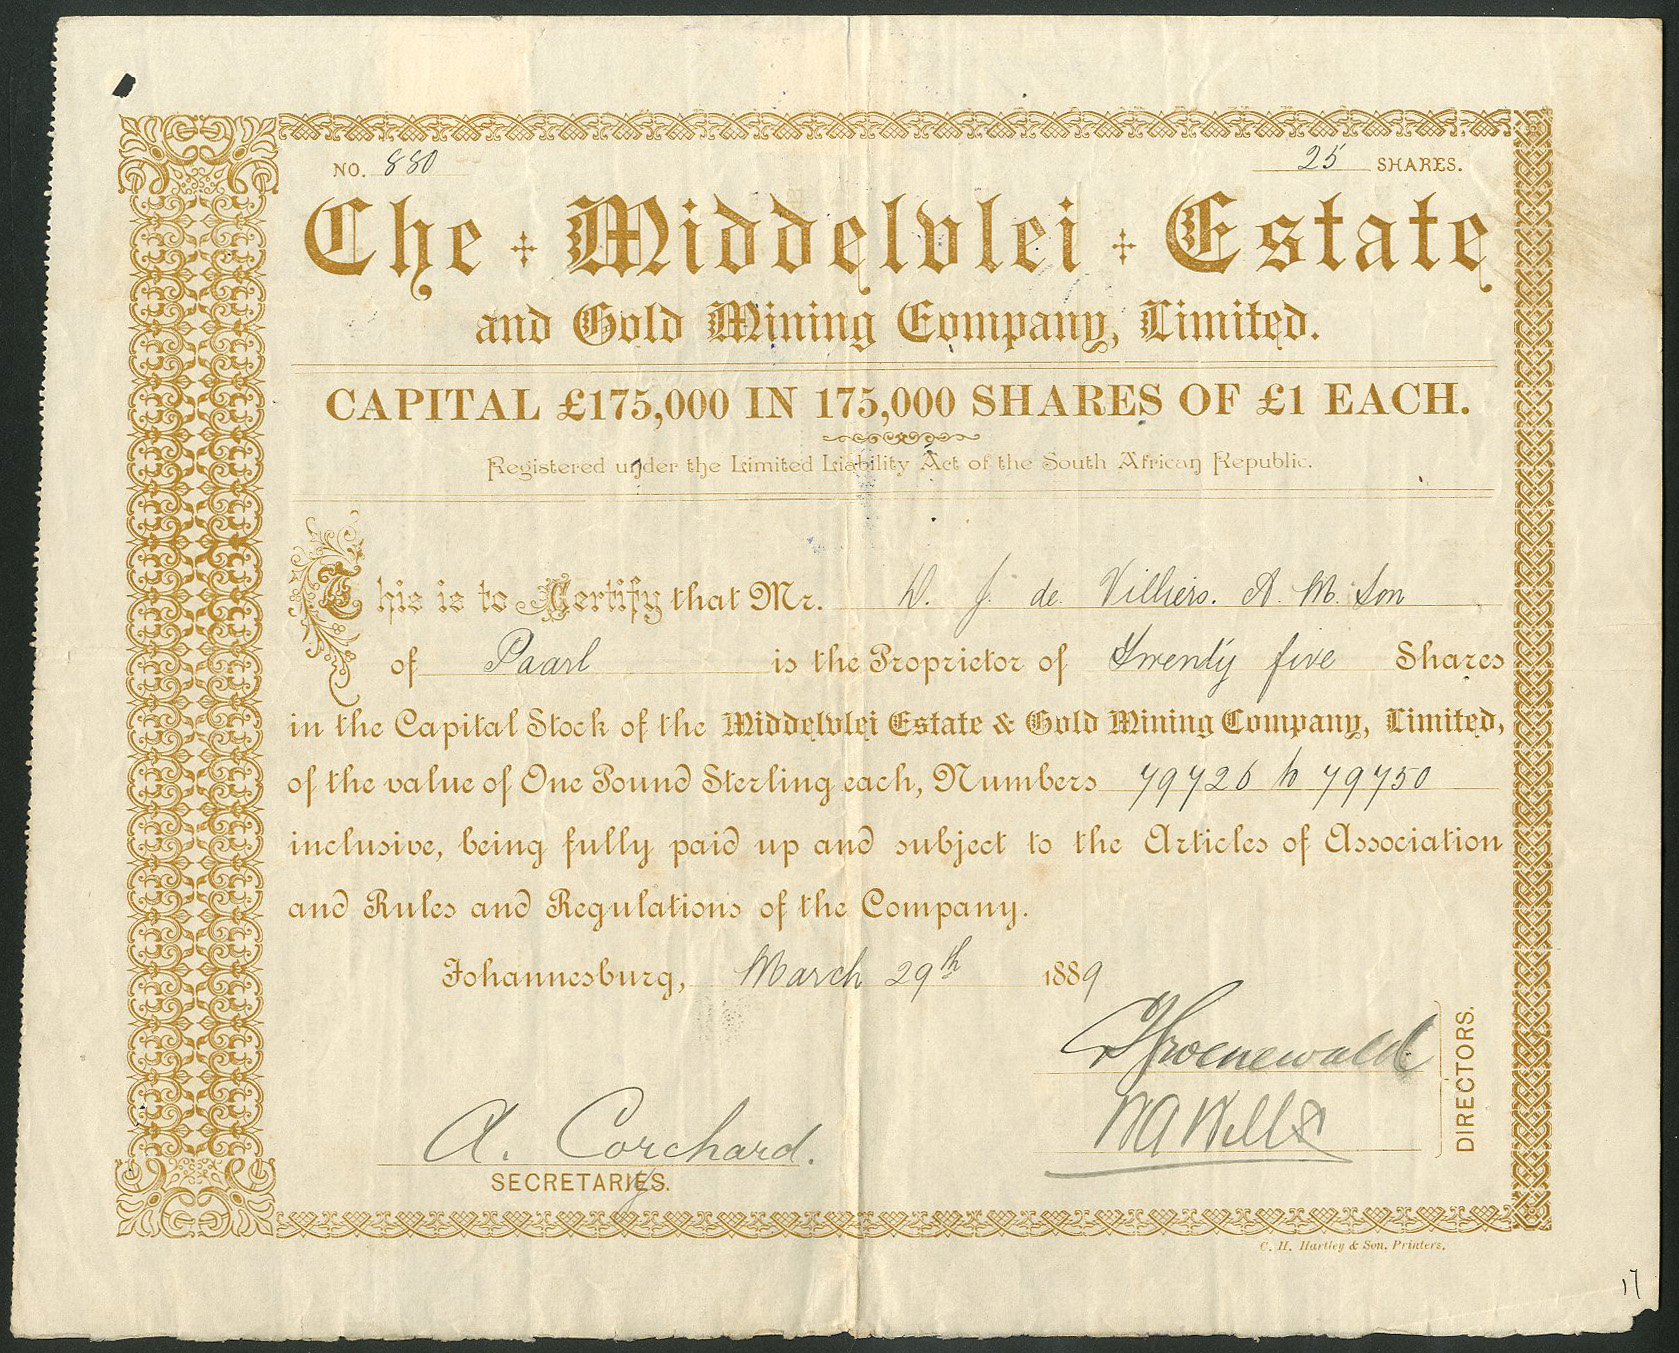 NO. 880
25 SHARES.
The Middelvlei Estate
and Gold Mining Company, Limited.
CAPITAL £175,000 IN 175,000 SHARES OF £1 EACH.
Registered under the Limited Liability Act of the South African Republic.
This is to Certify that Mr. D. J. de Villiers. A. M. Son
of Paarl is the Proprietor of Twenty five Shares
in the Capital Stock of the Middelvlei Estate & Gold Mining Company, Limited,
of the value of One Pound Sterling each, Numbers 79726 to 79750
inclusive, being fully paid up and subject to the Articles of Association
and Rules and Regulations of the Company.
Johannesburg, March 29th 1889
Groenewald
WA Wills
DIRECTORS.
A. Corchard.
SECRETARIES.
C. H. Hartley & Son, Printers.
17